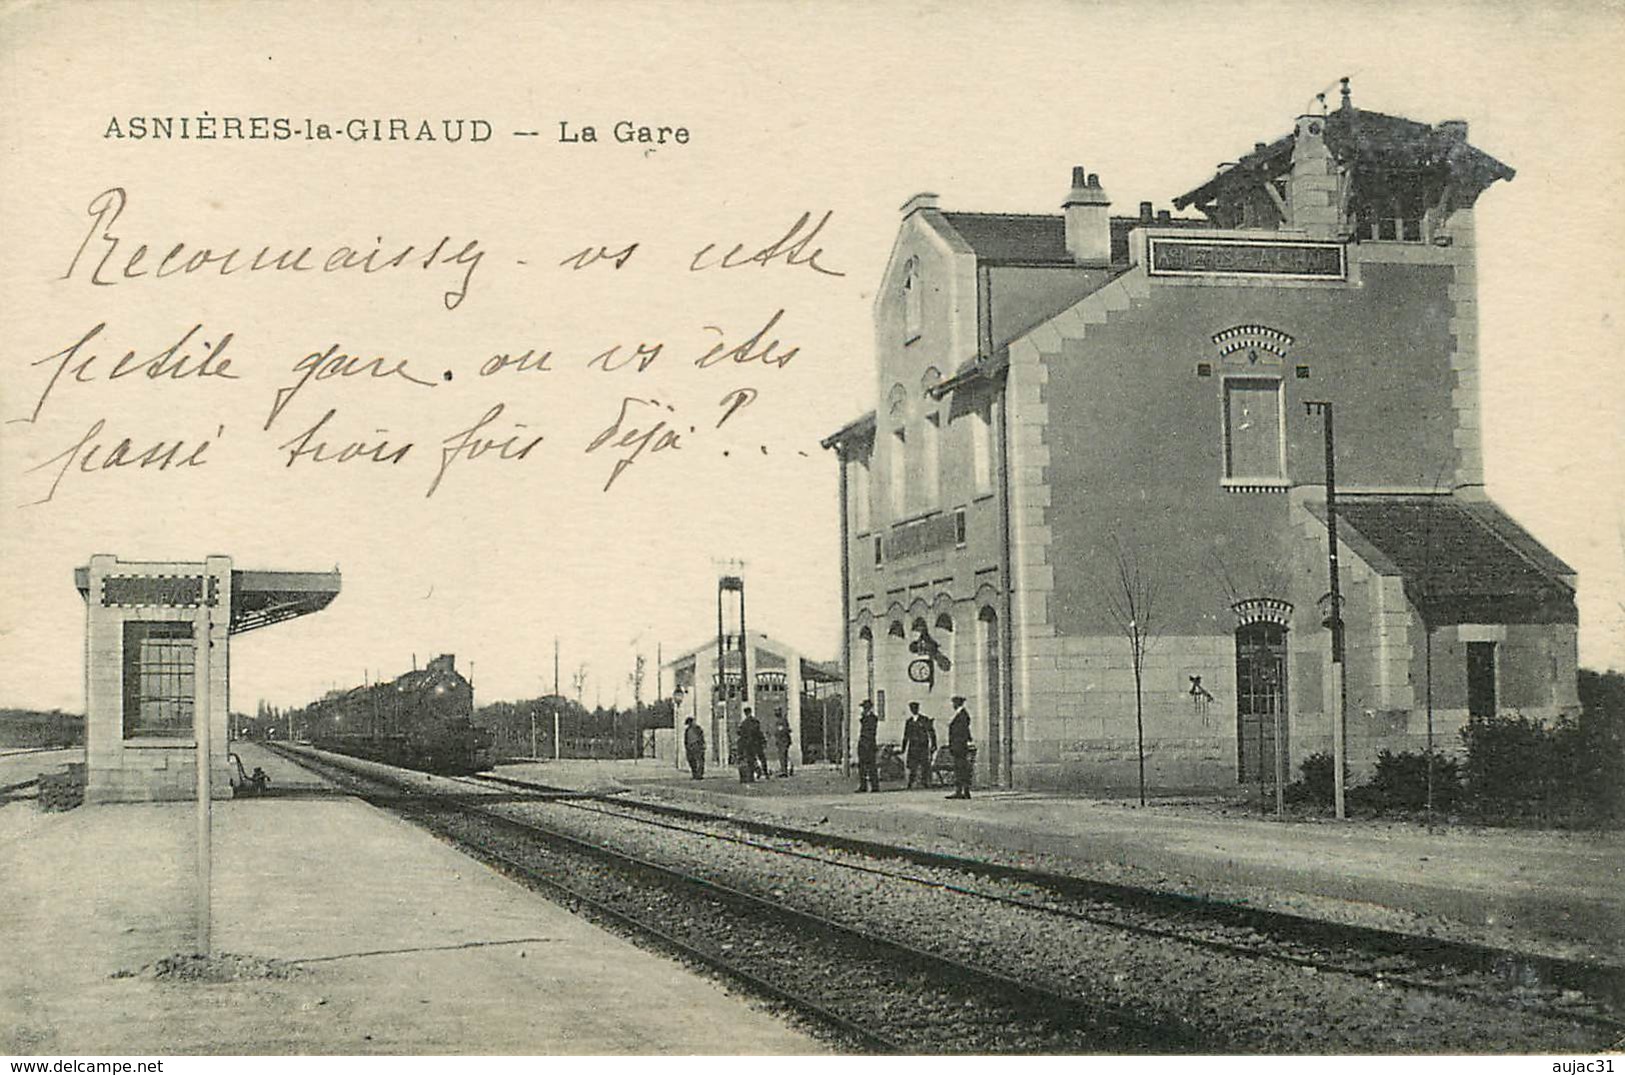 ASNIÈRES-la-GIRAUD — La Gare
Reconnaissez-vs cette
petite gare. ou vs êtes
passé trois fois déjà?...
www.delcampe.net
aujac31